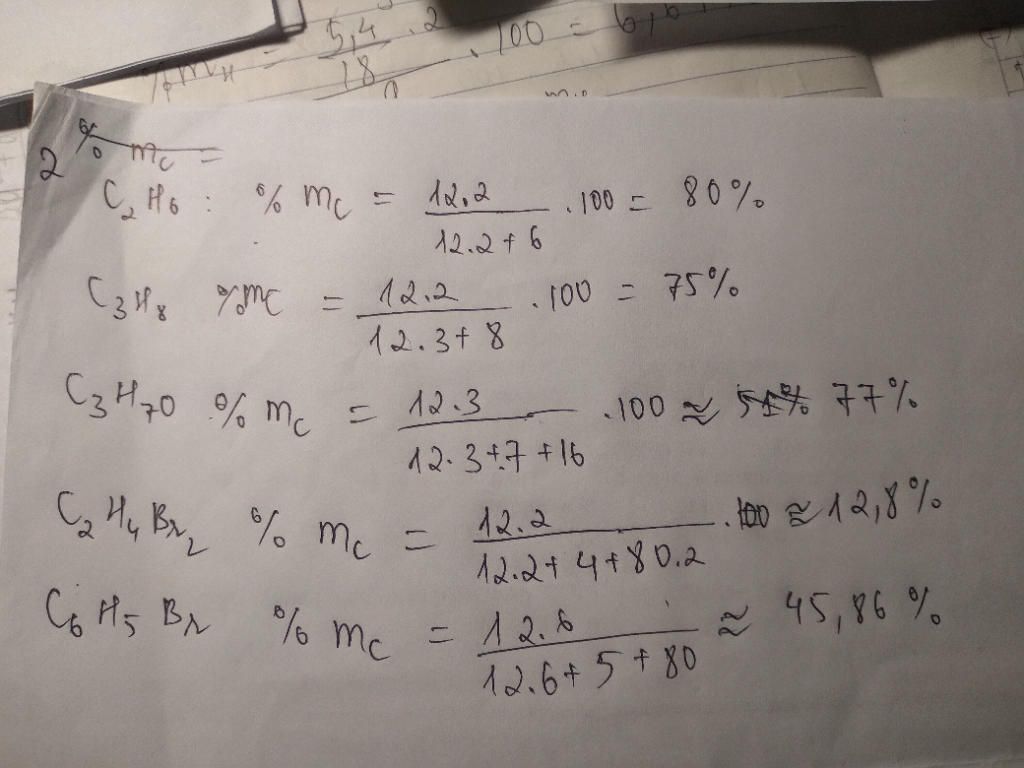 %mH = 5,4.2/18 . 100 = 6,6
2 % mc =
C2H6 : % mc = 12.2/12.2+6 .100 = 80%
C3H8 %mc = 12.2/12.3+8 .100 = 75%
C3H7O % mc = 12.3/12.3+7+16 .100 ≈ 51% 77%
C2H4Br2 % mc = 12.2/12.2+4+80.2 .100 ≈ 12,8%
C6H5Br % mc = 12.6/12.6+5+80 ≈ 45,86 %